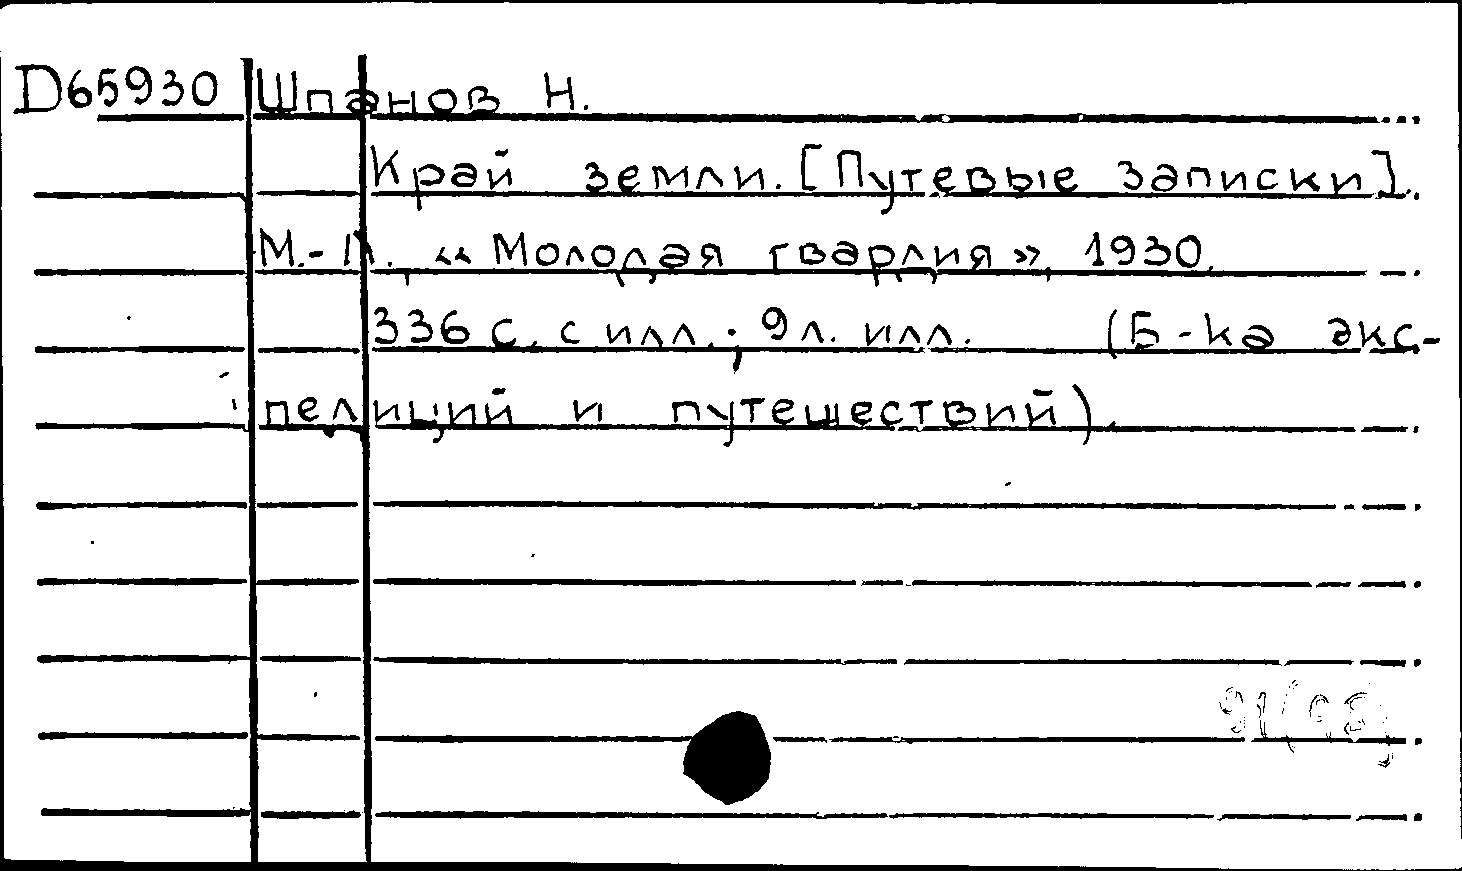 D65930 Шпанов Н.
Край земли. [Путевые записки].
М.-Л., «Молодая гвардия», 1930.
336 с. с илл.; 9 л. илл. (Б-ка экс-
педиций и путешествий).
91(98)